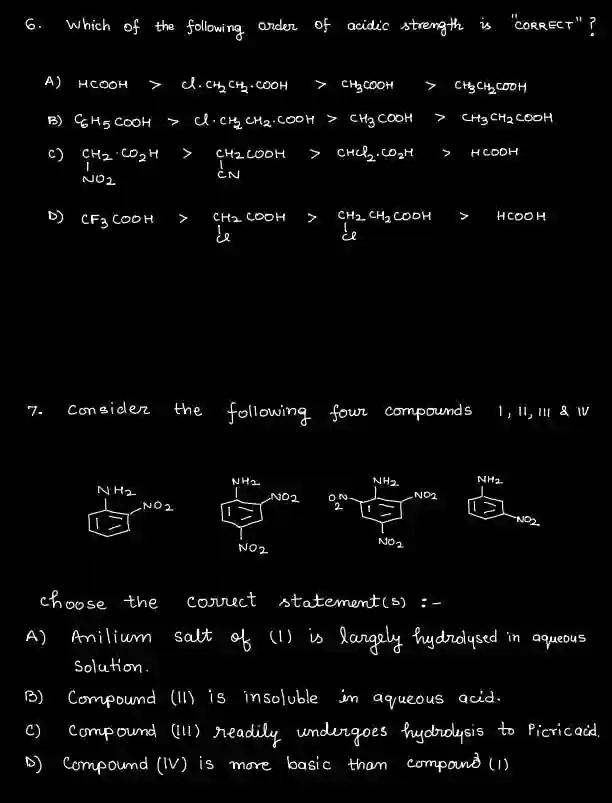 6. Which of the following order of acidic strength is "CORRECT"?
A) HCOOH > Cl.CH2CH2.COOH > CH3COOH > CH3CH2COOH
B) C6H5COOH > Cl.CH2CH2.COOH > CH3COOH > CH3CH2COOH
C) CH2.CO2H > CH2COOH > CHCl2.CO2H > HCOOH
NO2 CN
D) CF3COOH > CH2COOH > CH2CH2COOH > HCOOH
Cl Cl
7. Consider the following four compounds I, II, III & IV
NH2 NH2 NH2 NH2
NO2 NO2 O2N NO2 NO2
NO2 NO2
choose the correct statement(s) :-
A) Anilium salt of (I) is largely hydrolysed in aqueous
solution.
B) Compound (II) is insoluble in aqueous acid.
C) Compound (III) readily undergoes hydrolysis to Picricacid.
D) Compound (IV) is more basic than compound (I)